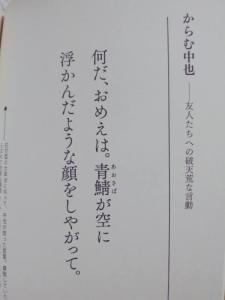 からむ中也――友人たちへの破天荒な言動
何だ、おめえは。青鯖が空に
あおさば
浮かんだような顔をしやがって。